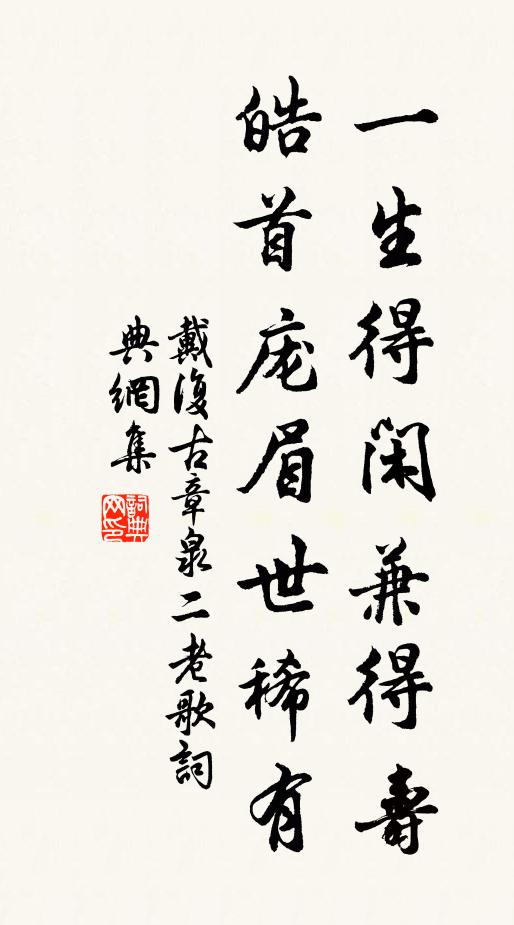 一生得閑兼得壽
皓首庞眉世稀有
戴復古章泉二老歌詞
典網集
詞典网印